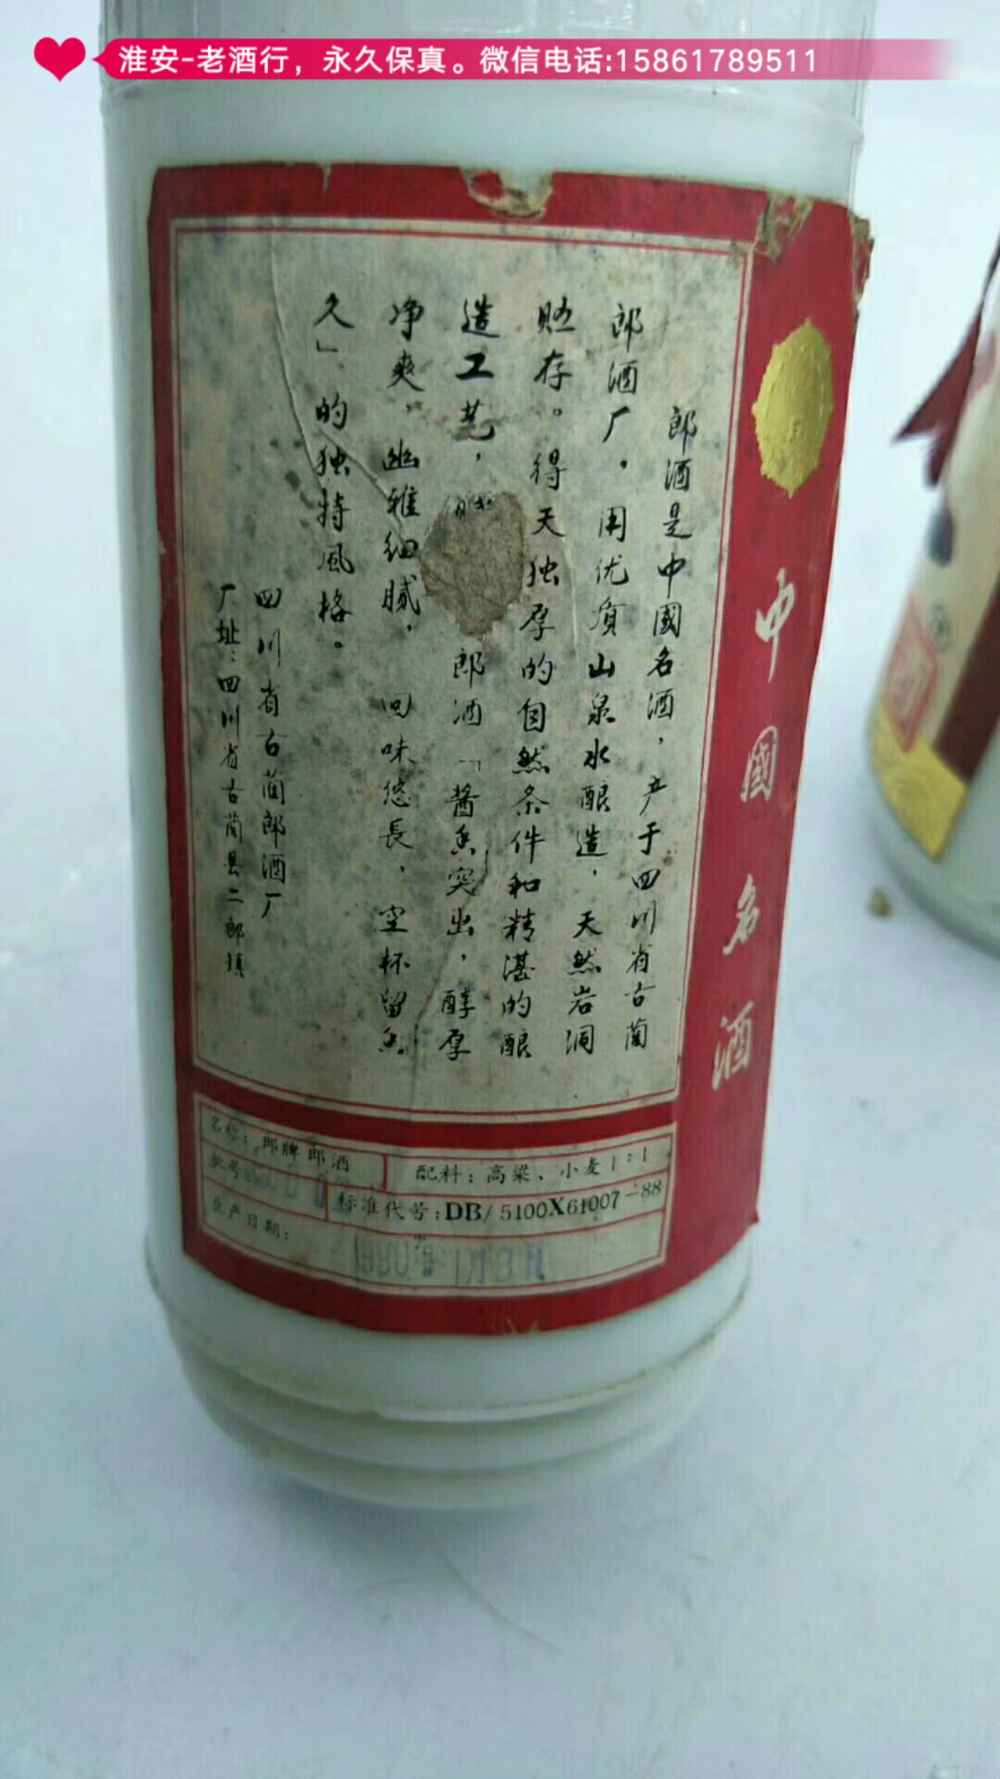 淮安-老酒行，永久保真。微信电话:15861789511
中國名酒
郎酒是中國名酒，产于四川省古蔺
郎酒厂。用优质山泉水酿造，天然岩洞
贮存。得天独厚的自然条件和精湛的酿
造工艺，郎酒「酱香突出，醇厚
净爽，幽雅细腻，回味悠長，空杯留香
久」的独特風格。
四川省古蔺郎酒厂
厂址：四川省古蔺县二郎镇
名称：郎牌郎酒
配料：高粱、小麦1：1
批号
标准代号：DB/5100X61007-88
生产日期：
1990年1月3日